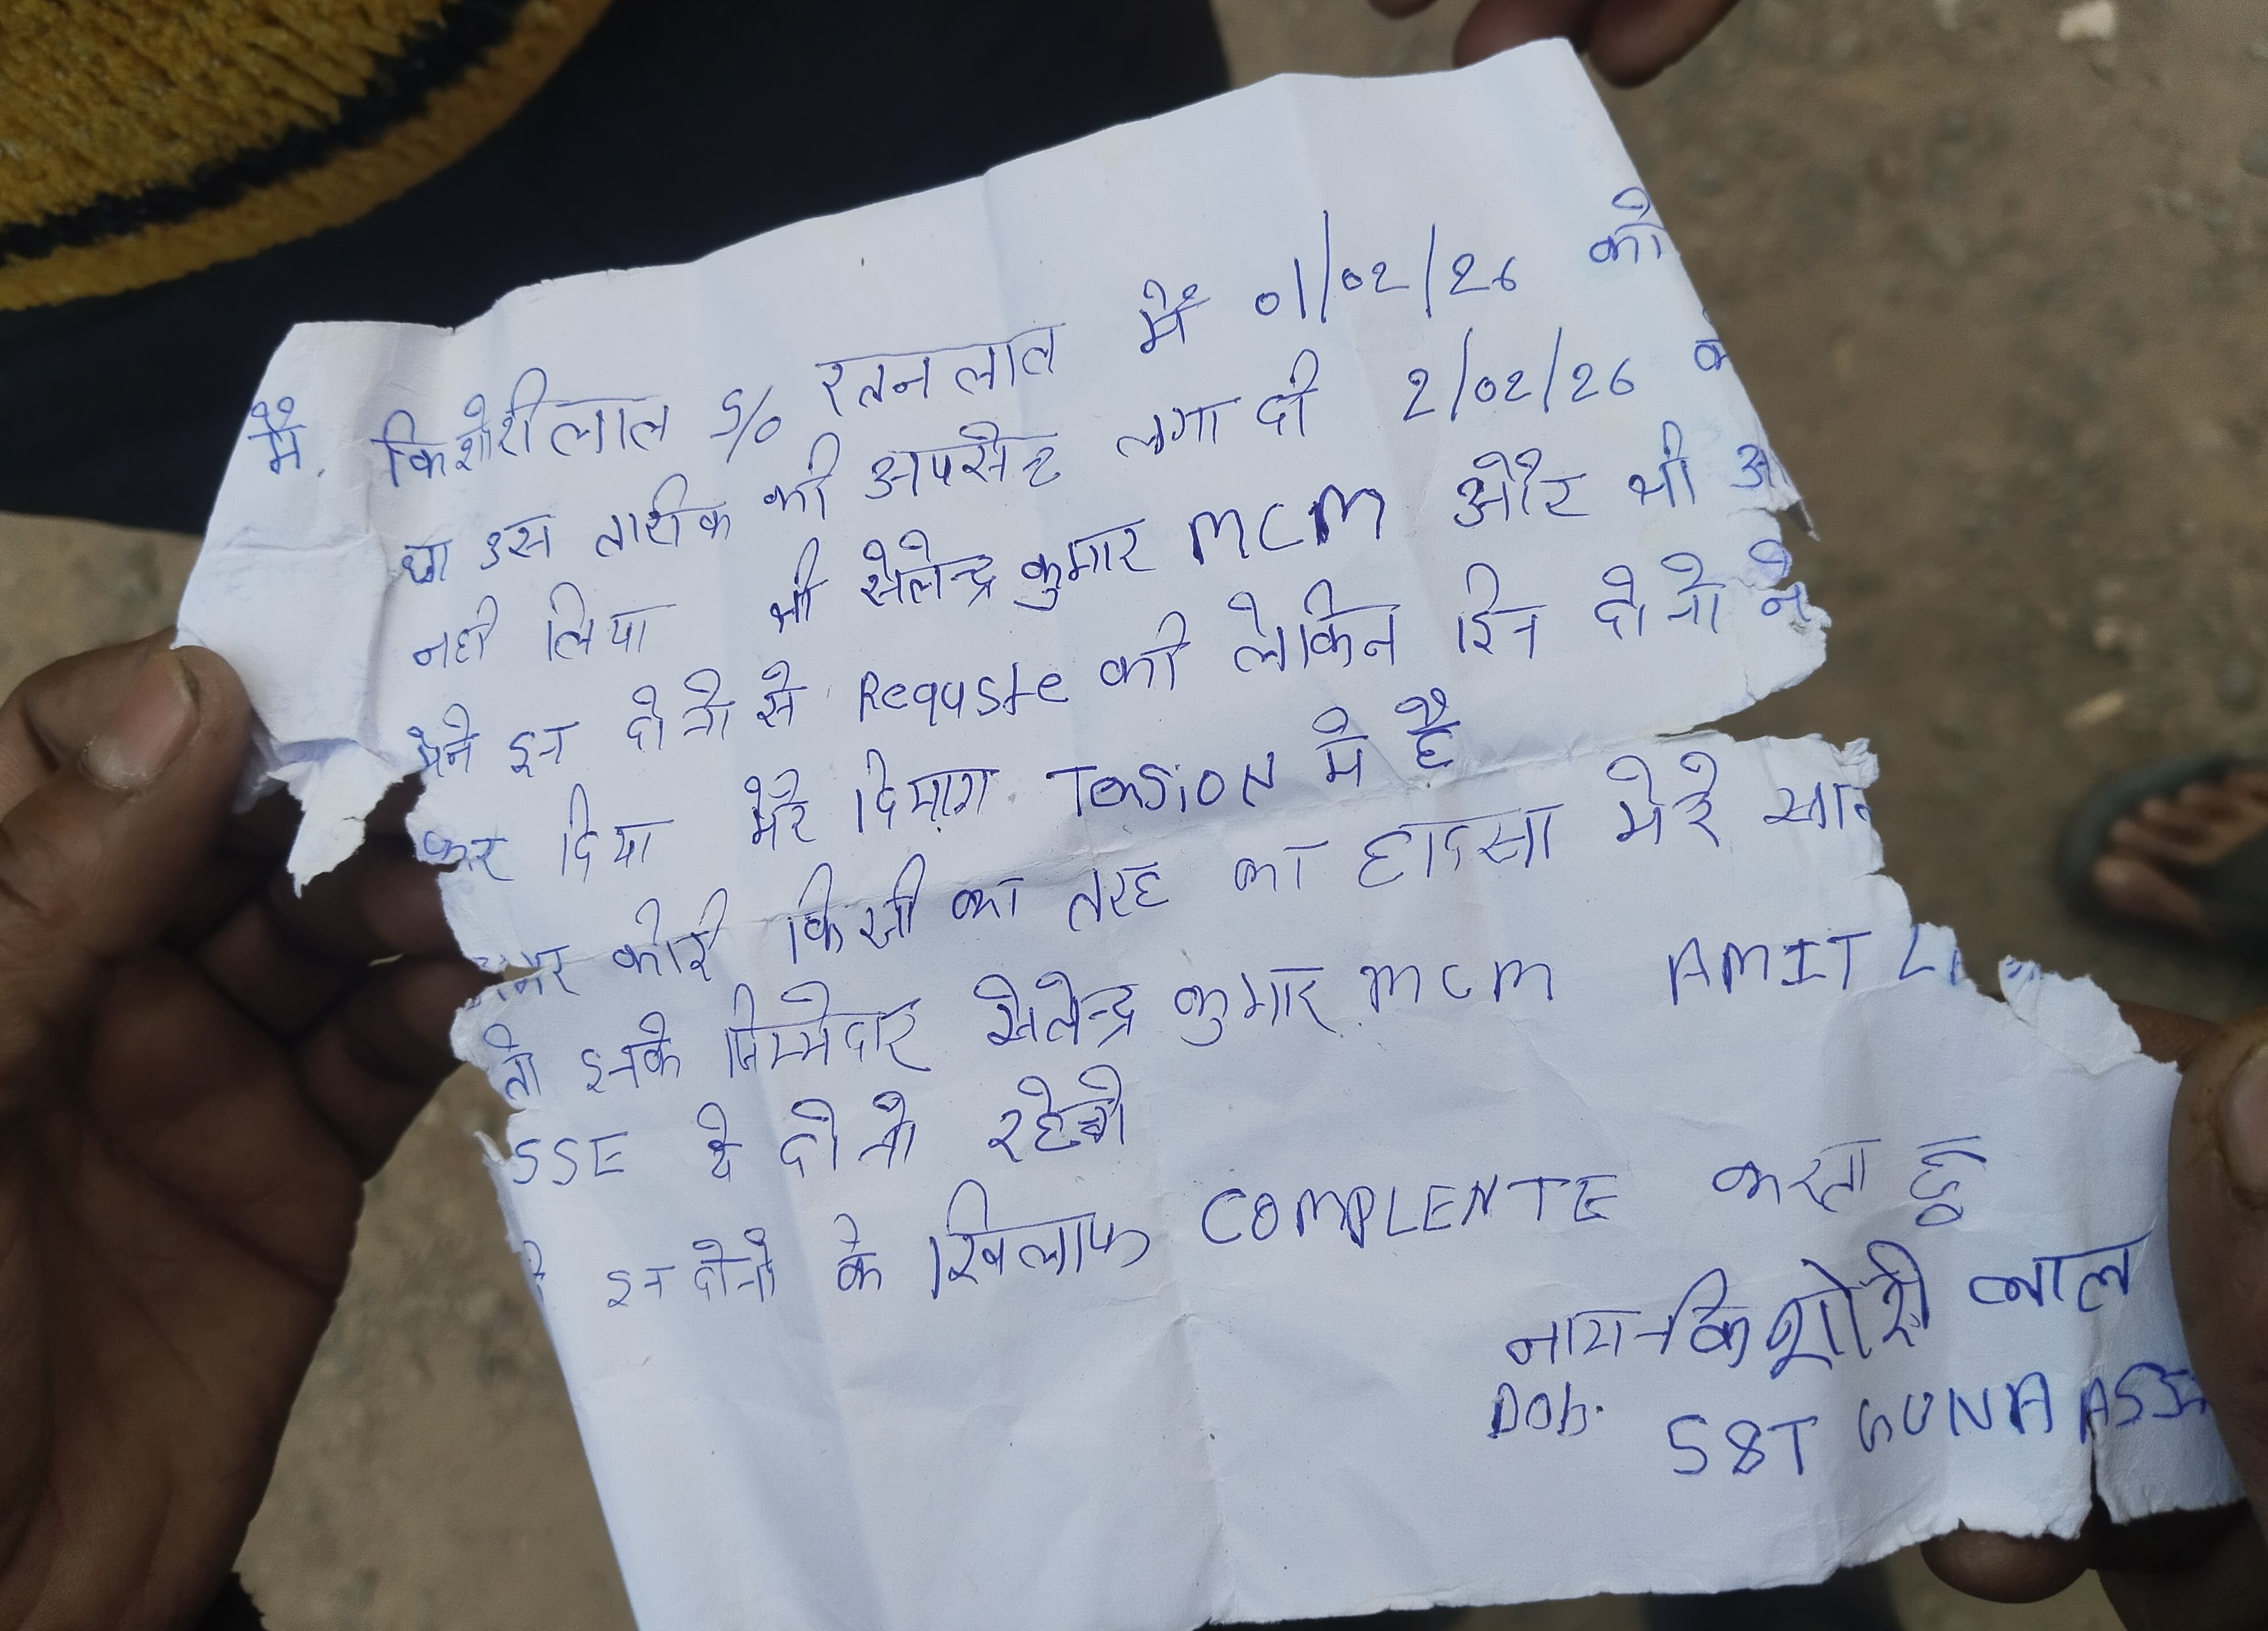 मैं. किशोरीलाल S/o रतनलाल में 01/02/26 को
था उस तारीक की अपसेन्ट लगा दी 2/02/26
नही लिया श्री सेलेन्द्र कुमार MCM और श्री
मेने इन दोनो से Requste की लेकिन इन दोनो ने
कर दिया मेरे दिमाग Tension मे है
कोई किसी का तरह का हादसा मेरे
तो इनके जिम्मेदार सेलेन्द्र कुमार MCM AMIT
SSE ये दोनो रहेगे
इन दोनो के खिलाफ COMPLENTE करता हूँ
नाम-किशोरी लाल
Dob. S&T GUNA